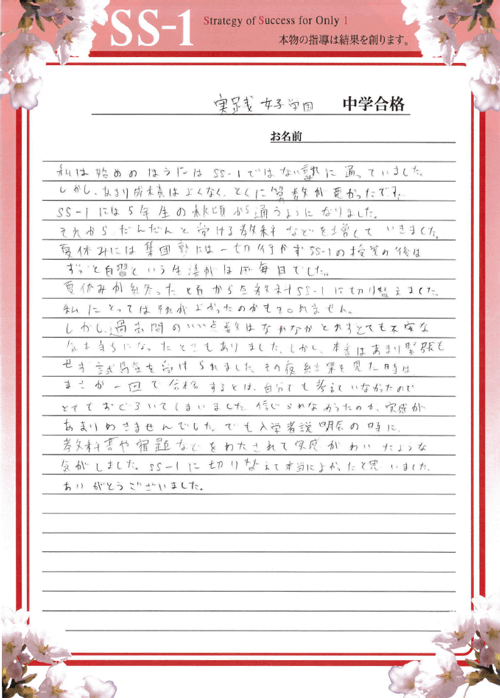 SS-1
Strategy of Success for Only 1
本物の指導は結果を創ります。
実践女子学園 中学合格
お名前
私は始めのほうにはSS-1ではない塾に通っていました。
しかし、あまり成績はよくなく、とくに算数が悪かったです。
SS-1には5年生の秋頃から通うようになりました。
それから、だんだんと受ける教科などを増していきました。
夏休みには集団塾には一切行かずSS-1の授業の後は
ずっと自習という生活がほぼ毎日でした。
夏休みが終ったと同から全教科SS-1に切り替えました。
私にとってはそれがよかったのかもしれません。
しかし過去問のいい点数はなかなかとれずとても不安な
気持ちになったこともありました。しかし、本番はあまり緊張も
せず試験を受けられました。その夜結果を見た時は
まさか一回で合格するとは、自分でも考えていなかったので
とてもおどろいてしまいました。信じられなかったのか、実感が
あまりわきませんでした。でも入学者説明会の時に、
教科書や宿題などをわたされて実感がわいたような
気がしました。SS-1に切り替えて本当によかったと思いました。
ありがとうございました。